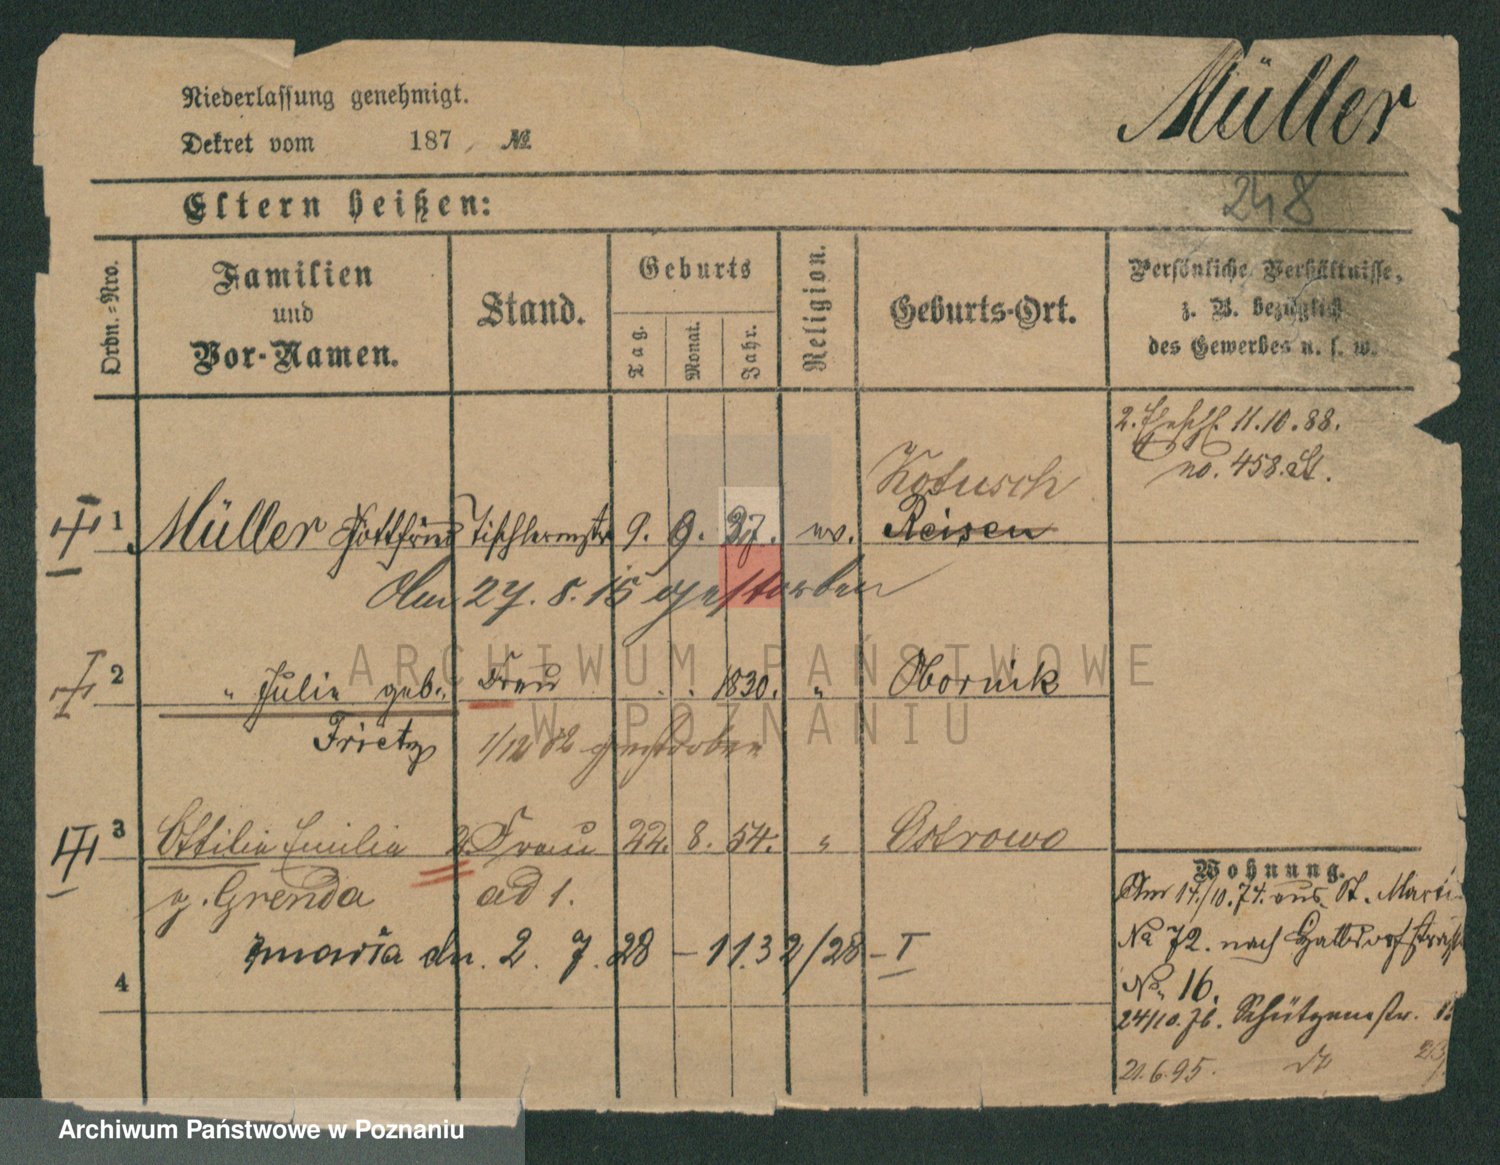 Müller
Niederlassung genehmigt.
Dekret vom 187 , №
248
Eltern heißen:
Ordn.-Nro.
Familien und Vor-Namen.
Stand.
Geburts
Tag.
Monat.
Jahr.
Religion.
Geburts-Ort.
Persönliche Verhältnisse,
z. B. bezüglich
des Gewerbes u. s. w.
2. Eheschl. 11.10.88.
no. 458. St.
Kotusch
1 Müller Gottfried Tischlermstr 9. 9. 27. ev. Reisen
Am 27. 8. 15 gestorben
2 " Julie geb. Frau 1830. " Obornik
Frietz 1/12 82 gestorben
3 Ottilie Emilie 2. Frau 22. 8. 54. " Ostrowo
g. Grenda ad 1.
Maria dn. 2. 7. 28 – 1132/28 – I
4
Wohnung.
Am 14./10.74. aus St. Marti
No 72. nach Halbdorfstraße
No 16.
24/10.76. Schützenstr.
21.6.95.
ARCHIWUM PAŃSTWOWE
W POZNANIU
Archiwum Państwowe w Poznaniu